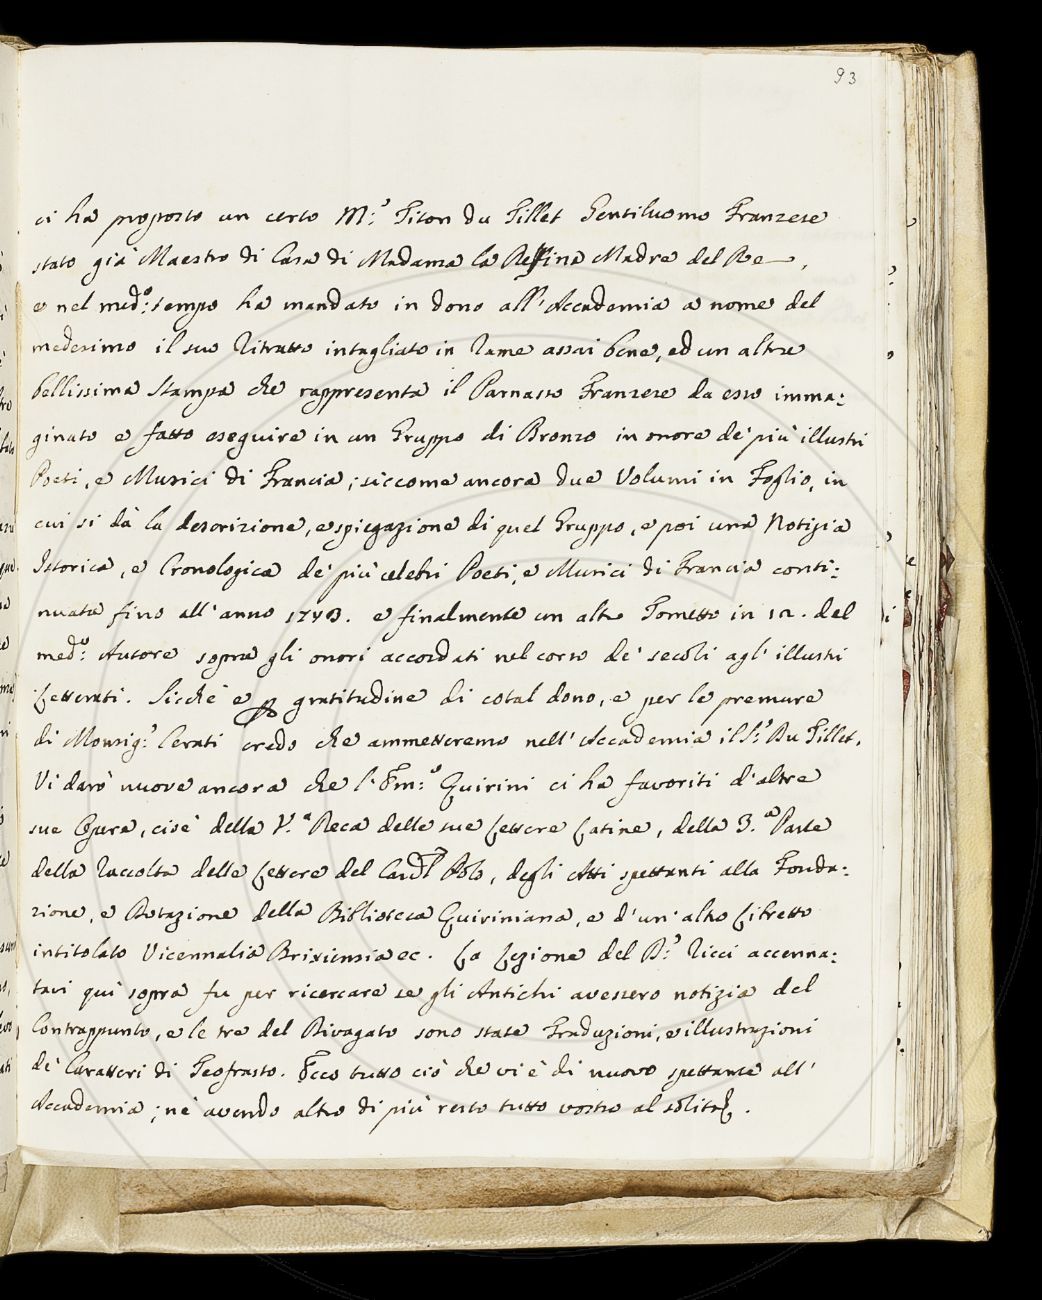 93
ci ha proposto un certo M.r Titon du Tillet Gentiluomo Franzese
stato già Maestro di Casa di Madama la Madre del Re,
e nel med.o tempo ha mandato in dono all'Accademia a nome del
medesimo il suo Ritratto intagliato in Rame assai bene, ed un altra
bellissima Stampa che rappresenta il Parnasso Franzese da esso imma:
ginato e fatto eseguire in un Gruppo di Bronzo in onore de' più illustri
Poeti, e Musici di Francia; siccome ancora due Volumi in Foglio, in
cui si dà la descrizione, e spiegazione di quel Gruppo, e poi una Notizia
Istorica, e Cronologica de' più celebri Poeti, e Musici di Francia conti:
nuata fino all'anno 1743. e finalmente un altro Tometto in 12. del
med.o Autore sopra gli onori accordati nel corso de' secoli agl'illustri
Letterati. Sicchè e gratitudine di cotal dono, e per le premure
di Monsig.r Cerati credo che ammetteremo nell'Accademia il S.r Du Tillet.
Vi darò nuove ancora che l'Em.o Quirini ci ha favoriti d'altre
sue Opera, cioè della V.a Deca delle sue Lettere Latine, della 3.a Parte
della Raccolta delle Lettere del Card.l Polo, degli Atti spettanti alla Fonda:
zione, e Dotazione della Biblioteca Quiriniana, e d'un altro Libretto
intitolato Vicennalia Brixiensia ec. La Lezione del D.r Ricci accenna:
tavi quì sopra fu per ricercare se gli Antichi avessero notizia del
Contrappunto, e le tre del Rivagato sono state Traduzioni, e illustrazioni
de' Caratteri di Teofrasto. Ecco tutto ciò che vi è di nuovo spettante all'
Accademia; nè avendo altro di più resto tutto vostro al solito.